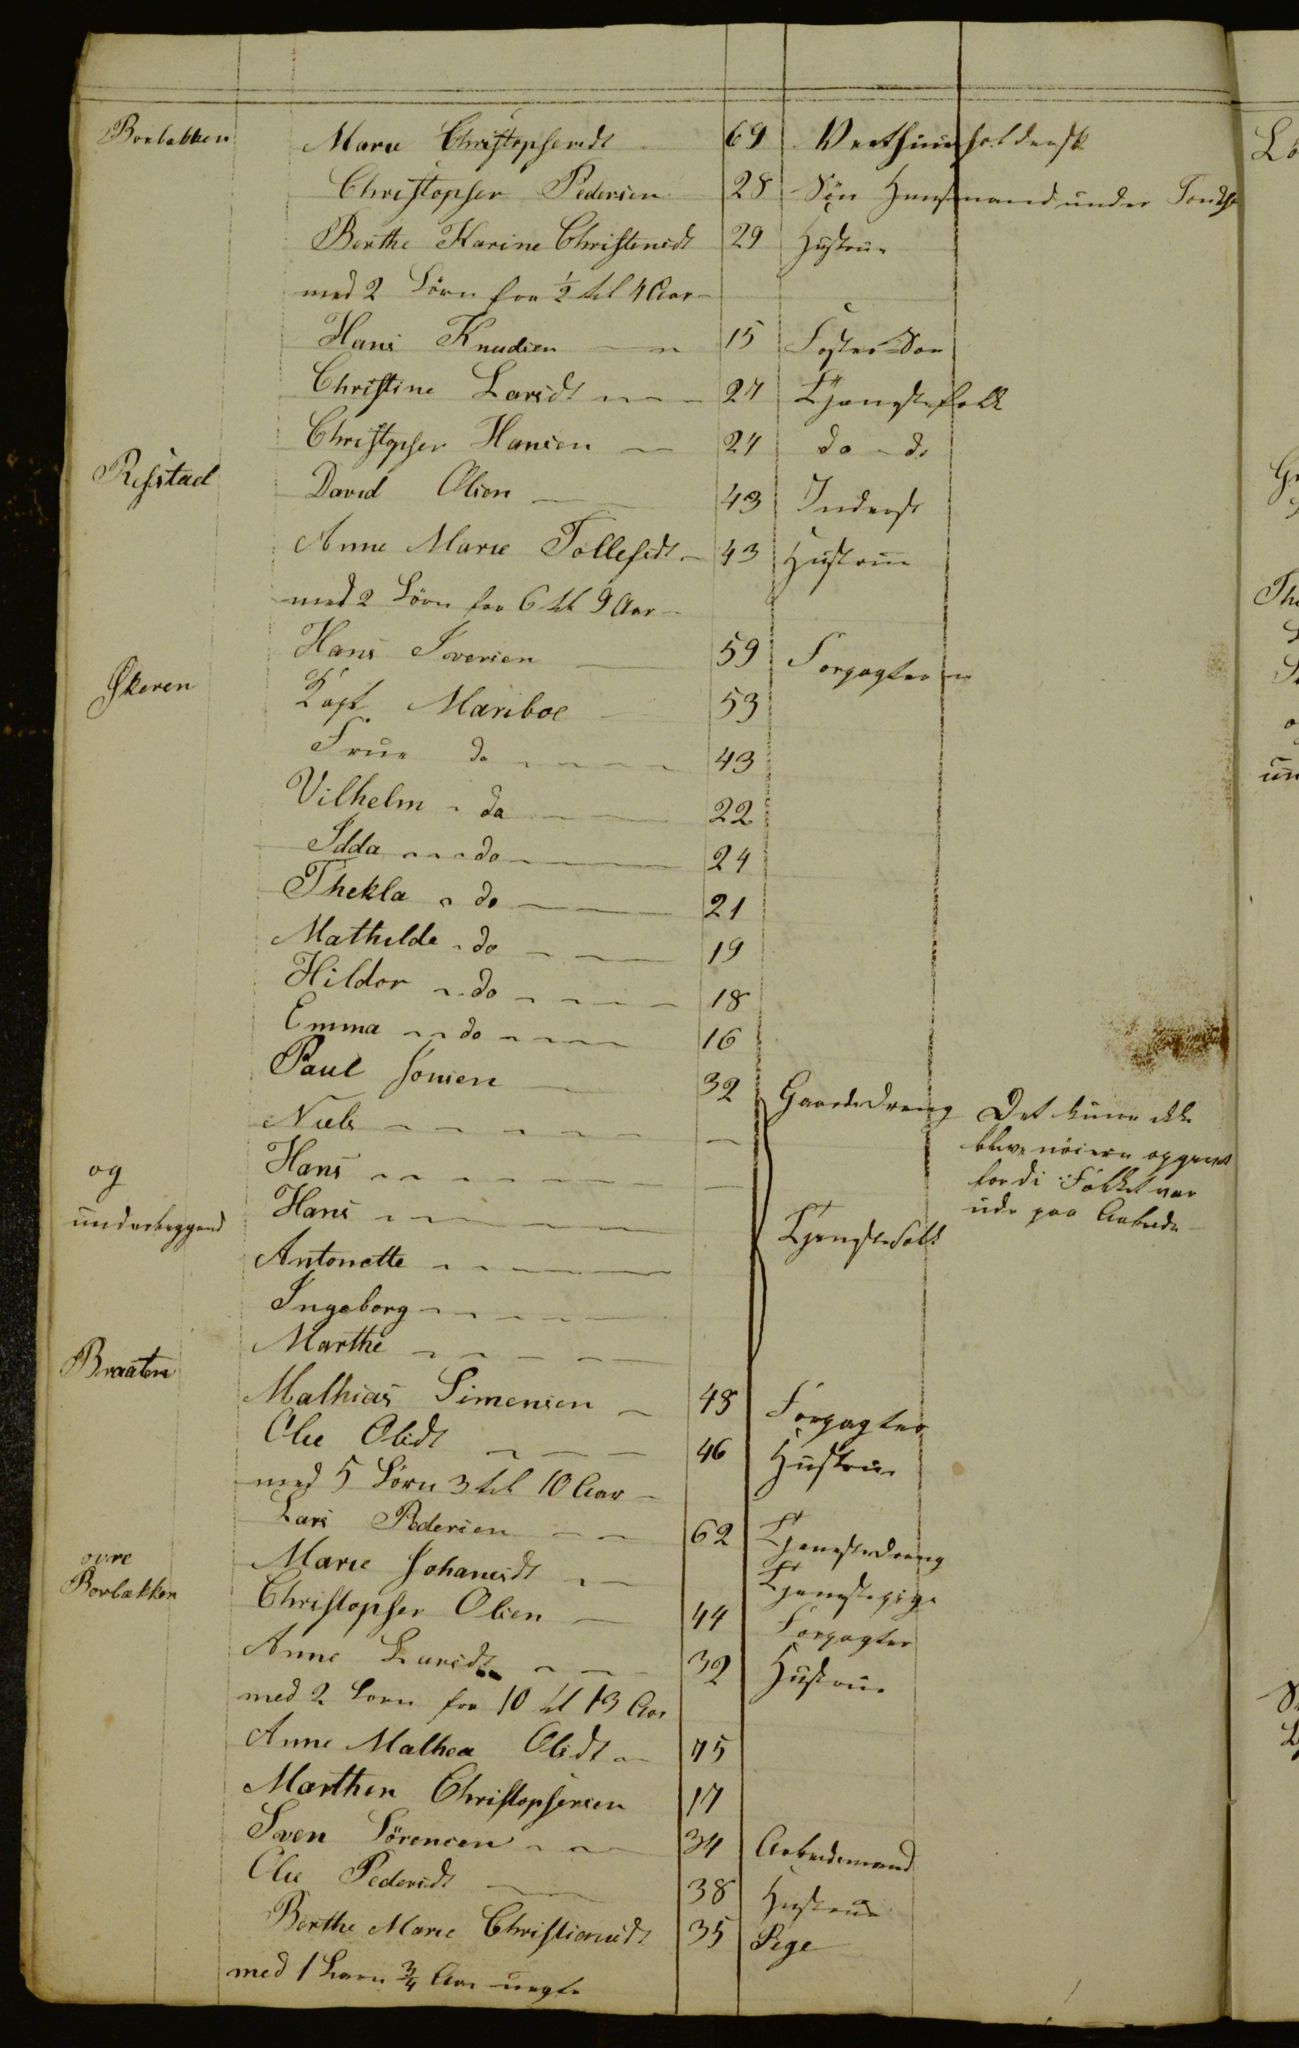 Borbakken Marie Christophersdt 69 Værthuusholderske
Christopher Pedersen 28 Søn Huusmand under
Berthe Karine Christensdt 29 Hustrue
med 2 Børn fra ½ til 4 Aar
Hans Knudsen 15 Foster Søn
Christine Larsdt 27 Tjenestefolk
Christopher Hansen 24 do do
Risstad David Olsen 43 Inderst
Anne Marie Tollefsdt 43 Hustrue
med 2 Børn fra 6 til 9 Aar
Hans Iversen 59 Forpagter
Økeren Kapt Mariboe 53
Frue do 43
Vilhelm do 22
Idda do 24
Thekla do 21
Mathilde do 19
Hildor do 18
Emma do 16
Paul Jonsen 32 Gaardsdreng
Niels
Hans
Hans
Antonette
Ingeborg
Marthe
og
underliggend
Tjenestefolk
Det kunne ikke
blive nøiere opgivet
fordi Folket var
ude paa Arbeide
Braaten Mathias Simensen 48 Forpagter
Olie Olsdt 46 Hustrue
med 5 Børn 3 til 10 Aar
Lars Pedersen 62 Tjenestedreng
Marie Johansdt Tjenestepige
ovre
Borbakken Christopher Olsen 44 Forpagter
Anne Larsdt 32 Hustrue
med 2 Børn fra 10 til 13 Aar
Anne Mathea Olsdt 75
Marthin Christophersen 17
Sven Sörensen 34 Arbeidsmand
Olie Pedersdt 38 Hustrue
Berthe Marie Christiansdt 35 Pige
med 1 Barn ¾ Aar uægte